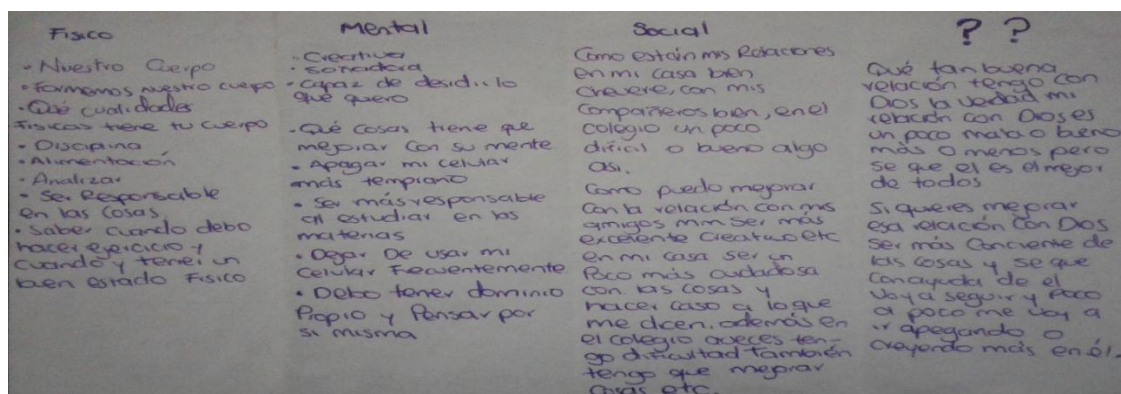 Fisico
• Nuestro Cuerpo
• Formemos nuestro cuerpo
• Qué cualidades
fisicas tiene tu cuerpo
• Disciplina
• Alimentación
• Analizar
• Ser Responsable
en las cosas
• Saber cuando debo
hacer ejercicio y
cuando y tener un
buen estado Fisico
Mental
• Creativa
• Soñadora
• Capaz de desidir lo
que quero
• Qué cosas tiene que
mejorar con su mente
• Apagar mi celular
más temprano
• Ser más responsable
al estudiar en las
materias
• Dejar De usar mi
celular Frecuentemente
• Debo tener dominio
Propio y Pensar por
si misma
Social
Como están mis Relaciones
en mi casa bien
chevere, con mis
compañeros bien, en el
colegio un poco
dificil o bueno algo
asi.
Como puedo mejorar
con la relación con mis
amigos mm ser más
excelente creativo etc
en mi casa ser un
Poco más cuidadosa
con las cosas y
hacer caso a lo que
me dicen. además en
el colegio aveces ten-
go dificultad también
tengo que mejorar
cosas etc.
? ?
Qué tan buena
relación tengo con
Dios la verdad mi
relación con Dios es
un poco mala o bueno
más o menos pero
se que el es el mejor
de todos
Si quieres mejorar
esa relación con Dios
ser más conciente de
las cosas y se que
con ayuda de el
voy a seguir y poco
a poco me voy a
ir apegando o
creyendo más en él.